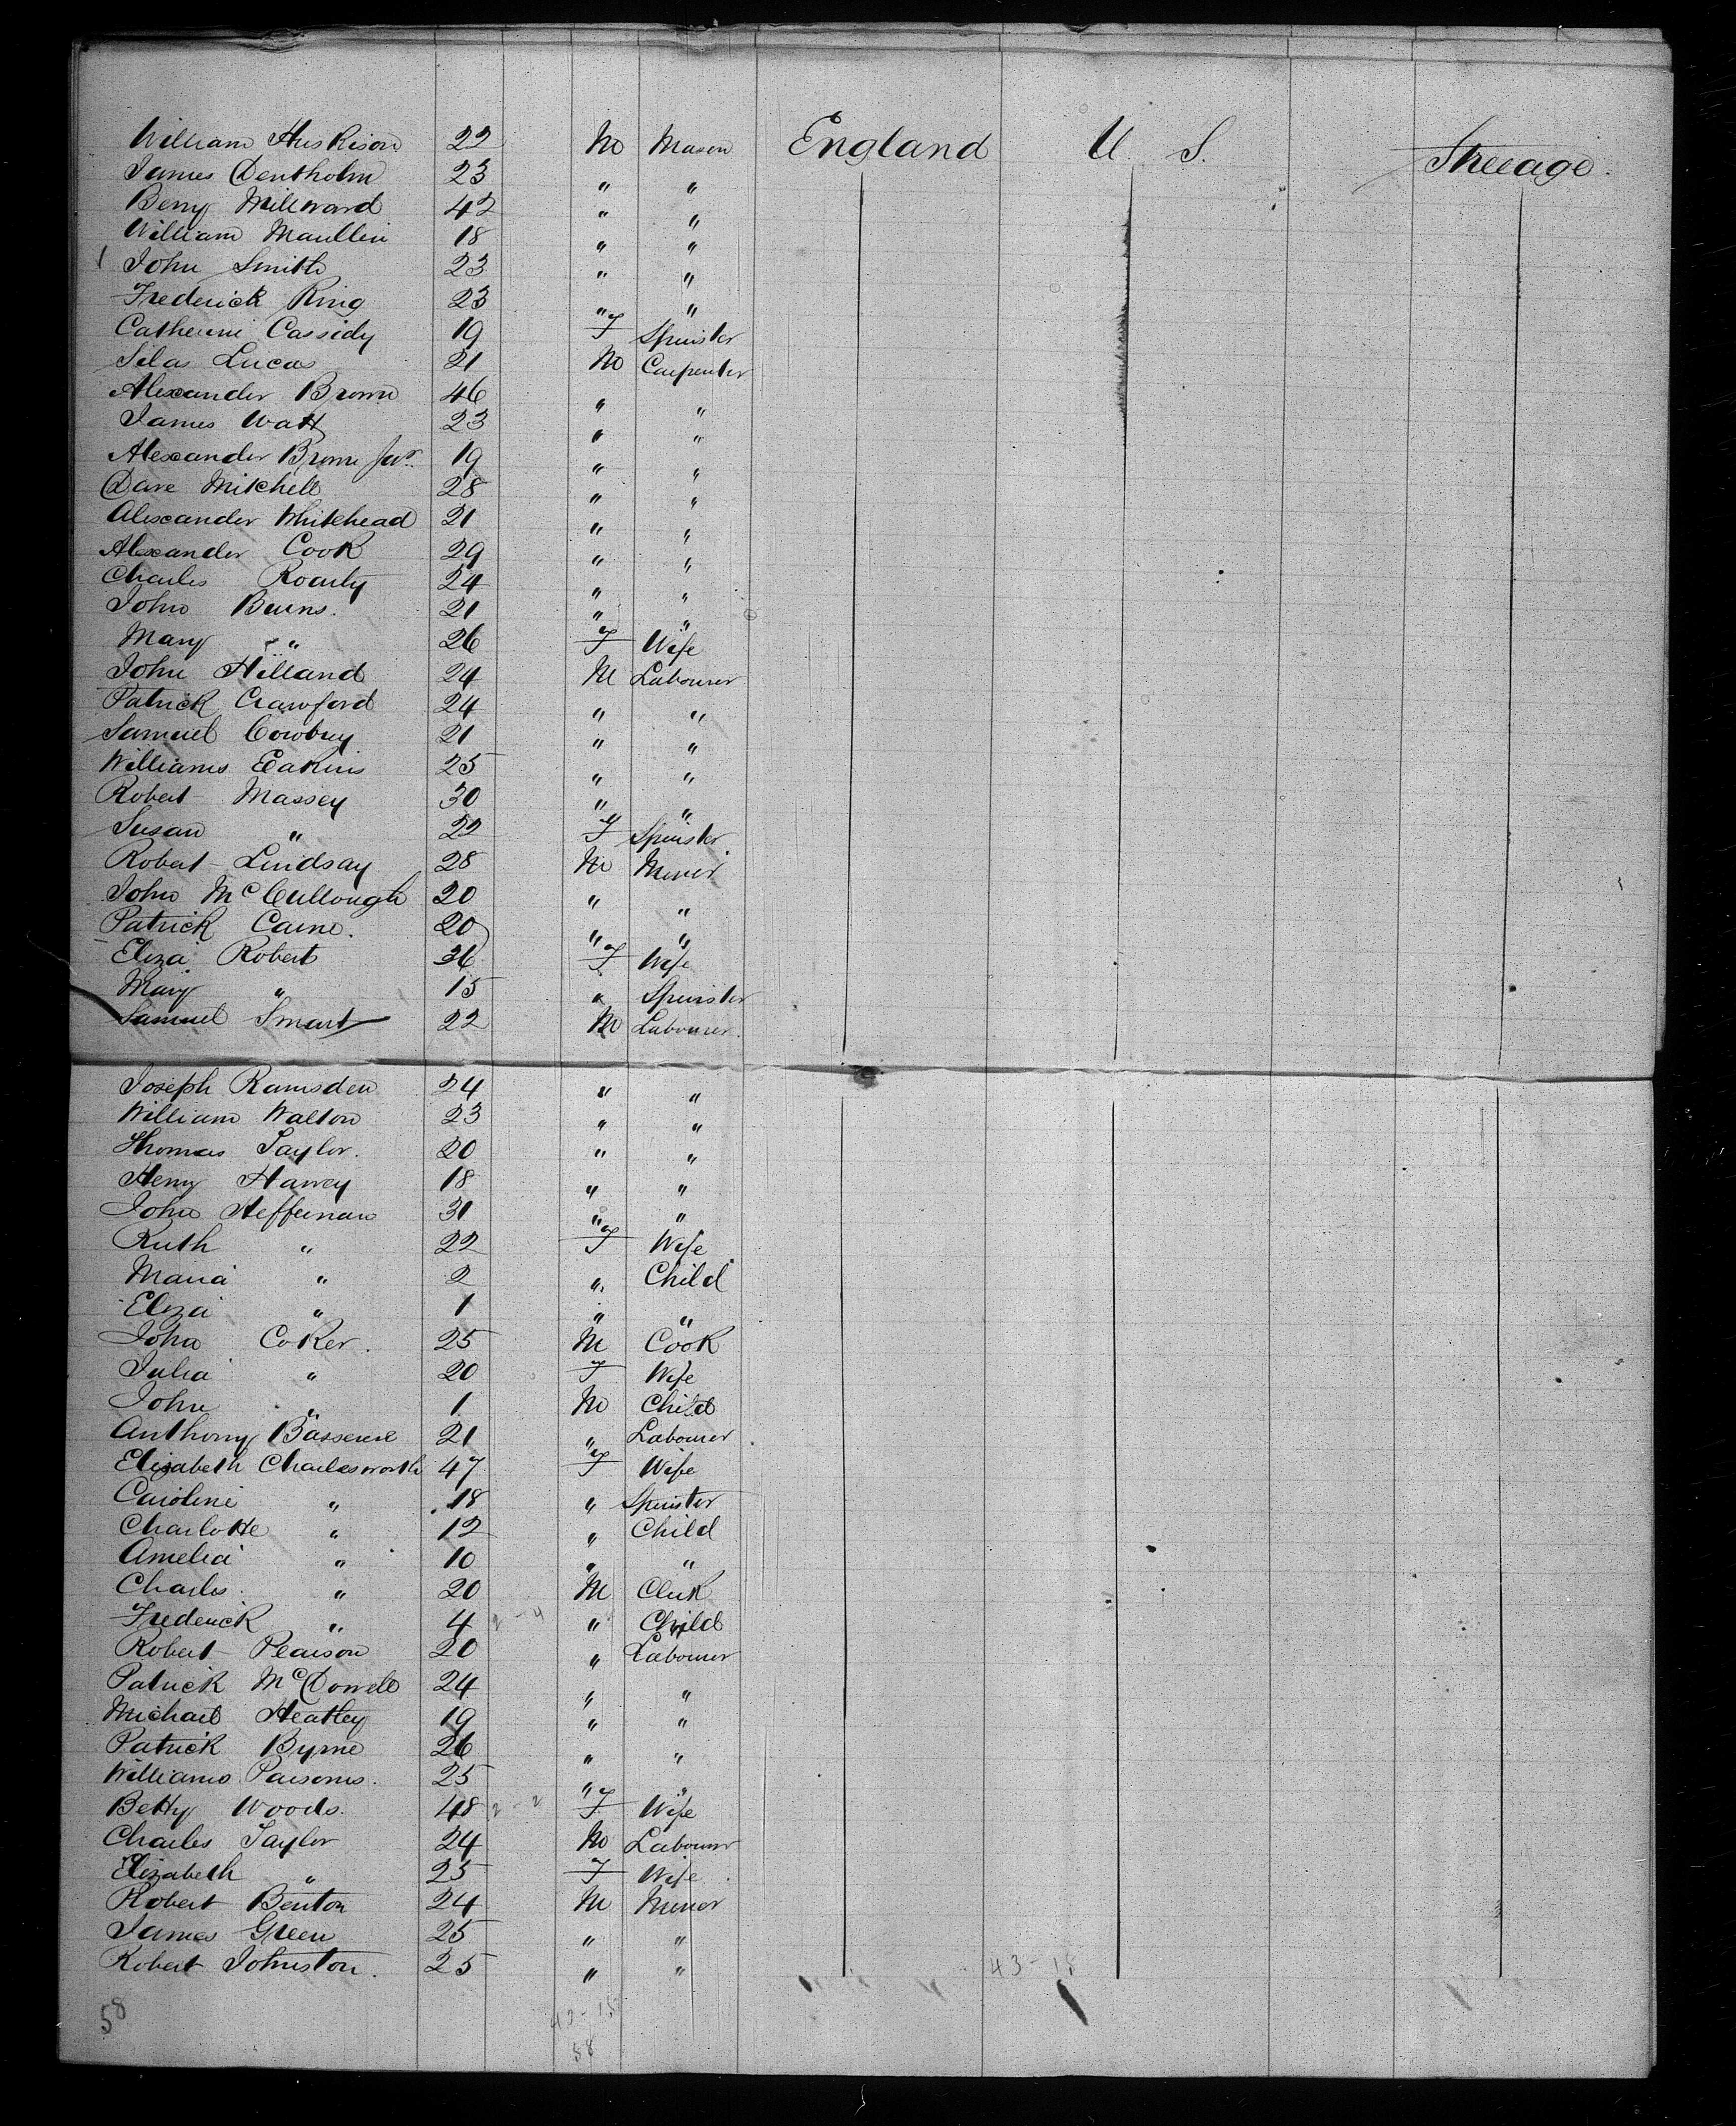 William Huskison 22 M Mason England U. S. Steerage.
James Dentholm 23 " "
Benj Millward 42 " "
William Maullin 18 " "
John Smith 23 " "
Frederick King 23 " "
Catherine Cassidy 19 F Spinster
Silas Lucas 21 M Carpenter
Alexander Brown 46 " "
James Watt 23 " "
Alexander Brown Jur. 19 " "
Dave Mitchell 28 " "
Alexander Whitehead 21 " "
Alexander Cook 29 " "
Charles Roarty 24 " "
John Burns. 21 " "
Mary " 26 F Wife
John Hilland 24 M Labourer
Patrick Crawford 24 " "
Samuel Cowbuy 21 " "
Williams Eakins 25 " "
Robert Massey 30 " "
Susan " 22 F Spinster
Robert Lindsay 28 M Miner
John McCullough 20 " "
Patrick Caine. 20 " "
Eliza Robert 36 F Wife
Mary " 15 " Spinster
Samuel Smart 22 M Labourer.
Joseph Ramsden 24 " "
William Walton 23 " "
Thomas Taylor. 20 " "
Henry Harvey 18 " "
John Heffernan 31 " "
Ruth " 22 F Wife
Maria " 2 " Child
Eliza " 1 " "
John Coker. 25 M Cook
Julia " 20 F Wife
John " 1 M Child
Anthony 21 " Labourer
Elizabeth Charlesworth 47 F Wife
Caroline " 18 " Spinster
Charlotte " 12 " Child
Amelia " 10 " "
Charles " 20 M Clerk
Frederick " 4 2-4 " Child
Robert Pearson 20 " Labourer
Patrick McDowell 24 " "
Michael Heatley 19 " "
Patrick Byrne 26 " "
Williams Parsons. 25 " "
Betty Woods. 48 2-2 F Wife
Charles Taylor 24 M Labourer
Elizabeth " 25 F Wife
Robert Benton 24 M Miner
James Green 25 " "
Robert Johnston. 25 " "
43-18
58 43-15
58